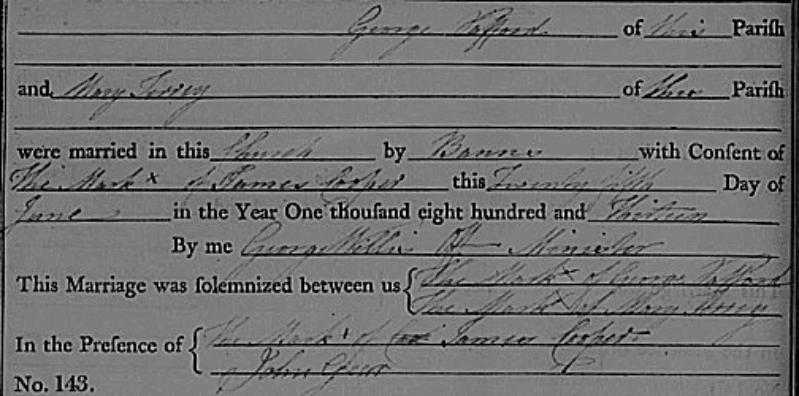 George Safford of this Parish
and Mary Torrey of this Parish
were married in this Church by Banns with Consent of
The Mark x of James Cooper this Twenty fifth Day of
June in the Year One thousand eight hundred and Thirteen
By me George Millis Minister
This Marriage was solemnized between us The Mark x of George Safford
The Mark x of Mary Torrey
In the Presence of The Mark x of James Cooper
John
No. 143.